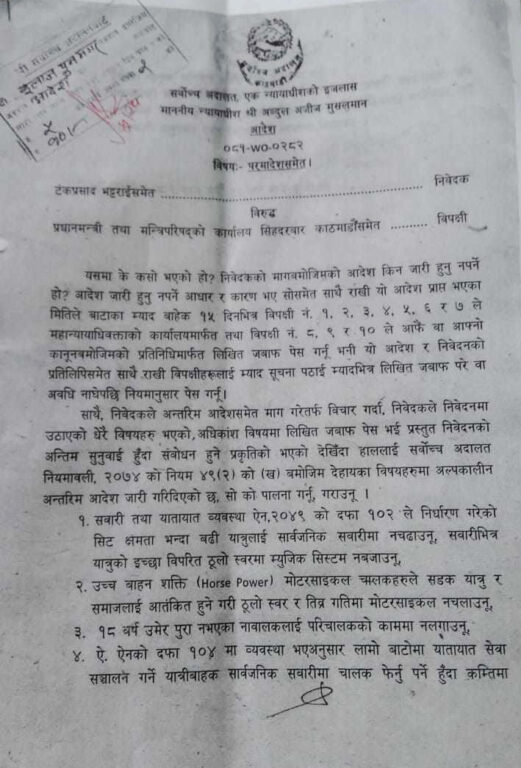 श्री सर्वोच्च अदालतबाट
आदेश
सर्वोच्च अदालत
काठमाडौं
सर्वोच्च अदालत, एक न्यायाधीशको इजलास
माननीय न्यायाधीश श्री अब्दुल अजीज मुसलमान
आदेश
०८१-WO-०२८२
विषयः- परमादेशसमेत।
टंकप्रसाद भट्टराईसमेत ........................................ निवेदक
विरुद्ध
प्रधानमन्त्री तथा मन्त्रिपरिषद्को कार्यालय सिंहदरवार काठमाडौंसमेत .......... विपक्षी
यसमा के कसो भएको हो? निवेदकको मागबमोजिमको आदेश किन जारी हुनु नपर्ने
हो? आदेश जारी हुनु नपर्ने आधार र कारण भए सोसमेत साथै राखी यो आदेश प्राप्त भएका
मितिले बाटाका म्याद बाहेक १५ दिनभित्र विपक्षी नं. १, २, ३, ४, ५, ६ र ७ ले
महान्यायाधिवक्ताको कार्यालयमार्फत तथा विपक्षी नं. ८, ९ र १० ले आफै वा आफ्नो
कानूनबमोजिमको प्रतिनिधिमार्फत लिखित जवाफ पेस गर्नू भनी यो आदेश र निवेदनको
प्रतिलिपिसमेत साथै राखी विपक्षीहरूलाई म्याद सूचना पठाई म्यादभित्र लिखित जवाफ परे वा
अवधि नाघेपछि नियमानुसार पेस गर्नू।
साथै, निवेदकले अन्तरिम आदेशसमेत माग गरेतर्फ विचार गर्दा, निवेदकले निवेदनमा
उठाएको धेरै विषयहरु भएको, अधिकांश विषयमा लिखित जवाफ पेस भई प्रस्तुत निवेदनको
अन्तिम सुनुवाई हुँदा संवोधन हुने प्रकृतिको भएको देखिँदा हाललाई सर्वोच्च अदालत
नियमावली, २०७४ को नियम ४९(२) को (ख) बमोजिम देहायका विषयहरुमा अल्पकालीन
अन्तरिम आदेश जारी गरिदिएको छ, सो को पालना गर्नू, गराउनू ।
१. सवारी तथा यातायात व्यवस्था ऐन,२०४९ को दफा १०२ ले निर्धारण गरेको
सिट क्षमता भन्दा बढी यात्रुलाई सार्वजनिक सवारीमा नचढाउनू, सवारीभित्र
यात्रुको इच्छा विपरित ठूलो स्वरमा म्युजिक सिस्टम नबजाउनू,
२. उच्च बाहन शक्ति (Horse Power) मोटरसाइकल चालकहरुले सडक यात्रु र
समाजलाई आतंकित हुने गरी ठूलो स्वर र तिव्र गतिमा मोटरसाइकल नचलाउनू,
३. १८ बर्ष उमेर पुरा नभएका नावालकलाई परिचालकको काममा नलगाउनू,
४. ऐ. ऐनको दफा १०४ मा व्यवस्था भएअनुसार लामो बाटोमा यातायात सेवा
सञ्चालन गर्ने यात्रीबाहक सार्वजनिक सवारीमा चालक फेर्नु पर्ने हुँदा कम्तिमा